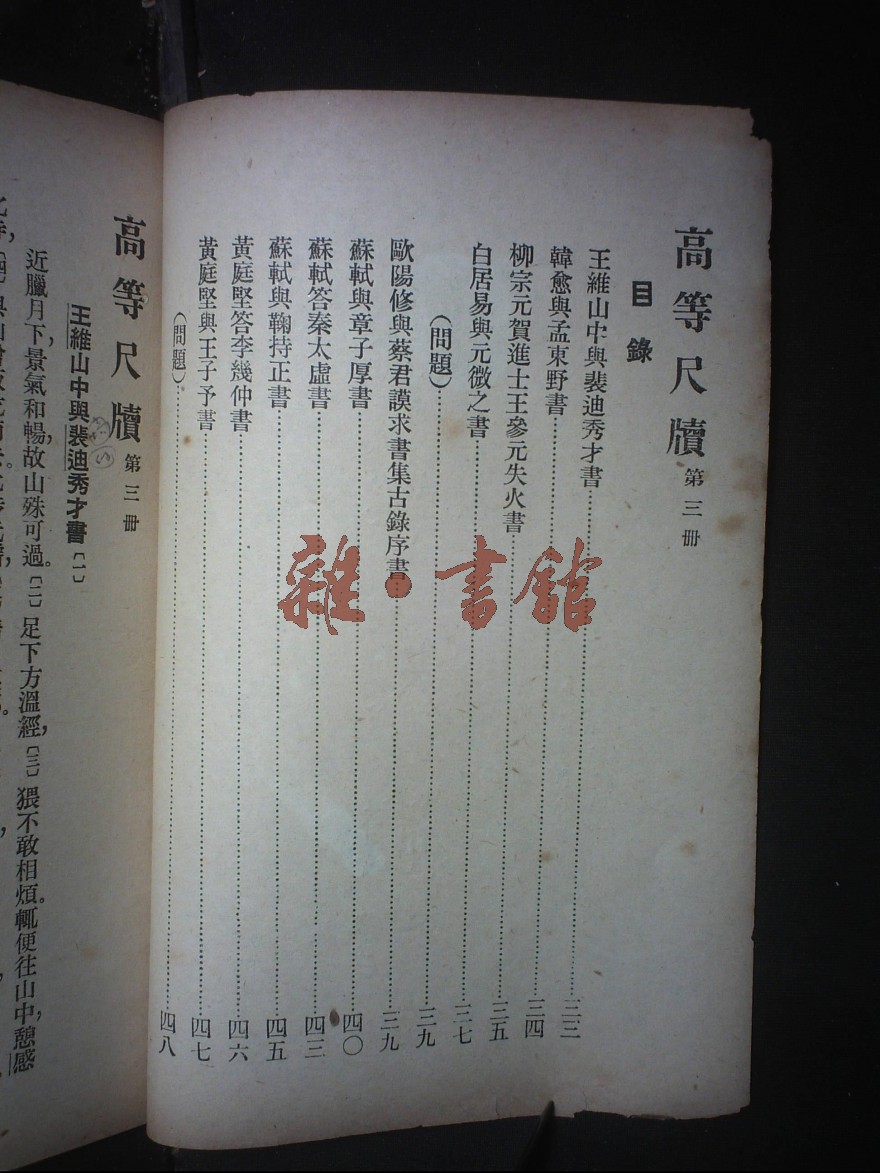 高等尺牘 第三冊
目錄
王維山中與裴迪秀才書……三三
韓愈與孟東野書……三四
柳宗元賀進士王參元失火書……三五
白居易與元微之書……三七
（問題）……三九
歐陽修與蔡君謨求書集古錄序書……三九
蘇軾與章子厚書……四〇
蘇軾答秦太虛書……四三
蘇軾與鞠持正書……四五
黃庭堅答李幾仲書……四六
黃庭堅與王子予書……四七
（問題）……四八
雜·書館
高等尺牘 第三冊
王維山中與裴迪秀才書〔一〕
近臘月下，景氣和暢，故山殊可過。〔二〕足下方溫經，〔三〕猥不敢相煩。輒便往山中，憩感